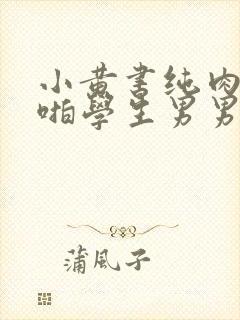 小黃書纯肉
啪學生男男
蒲風子